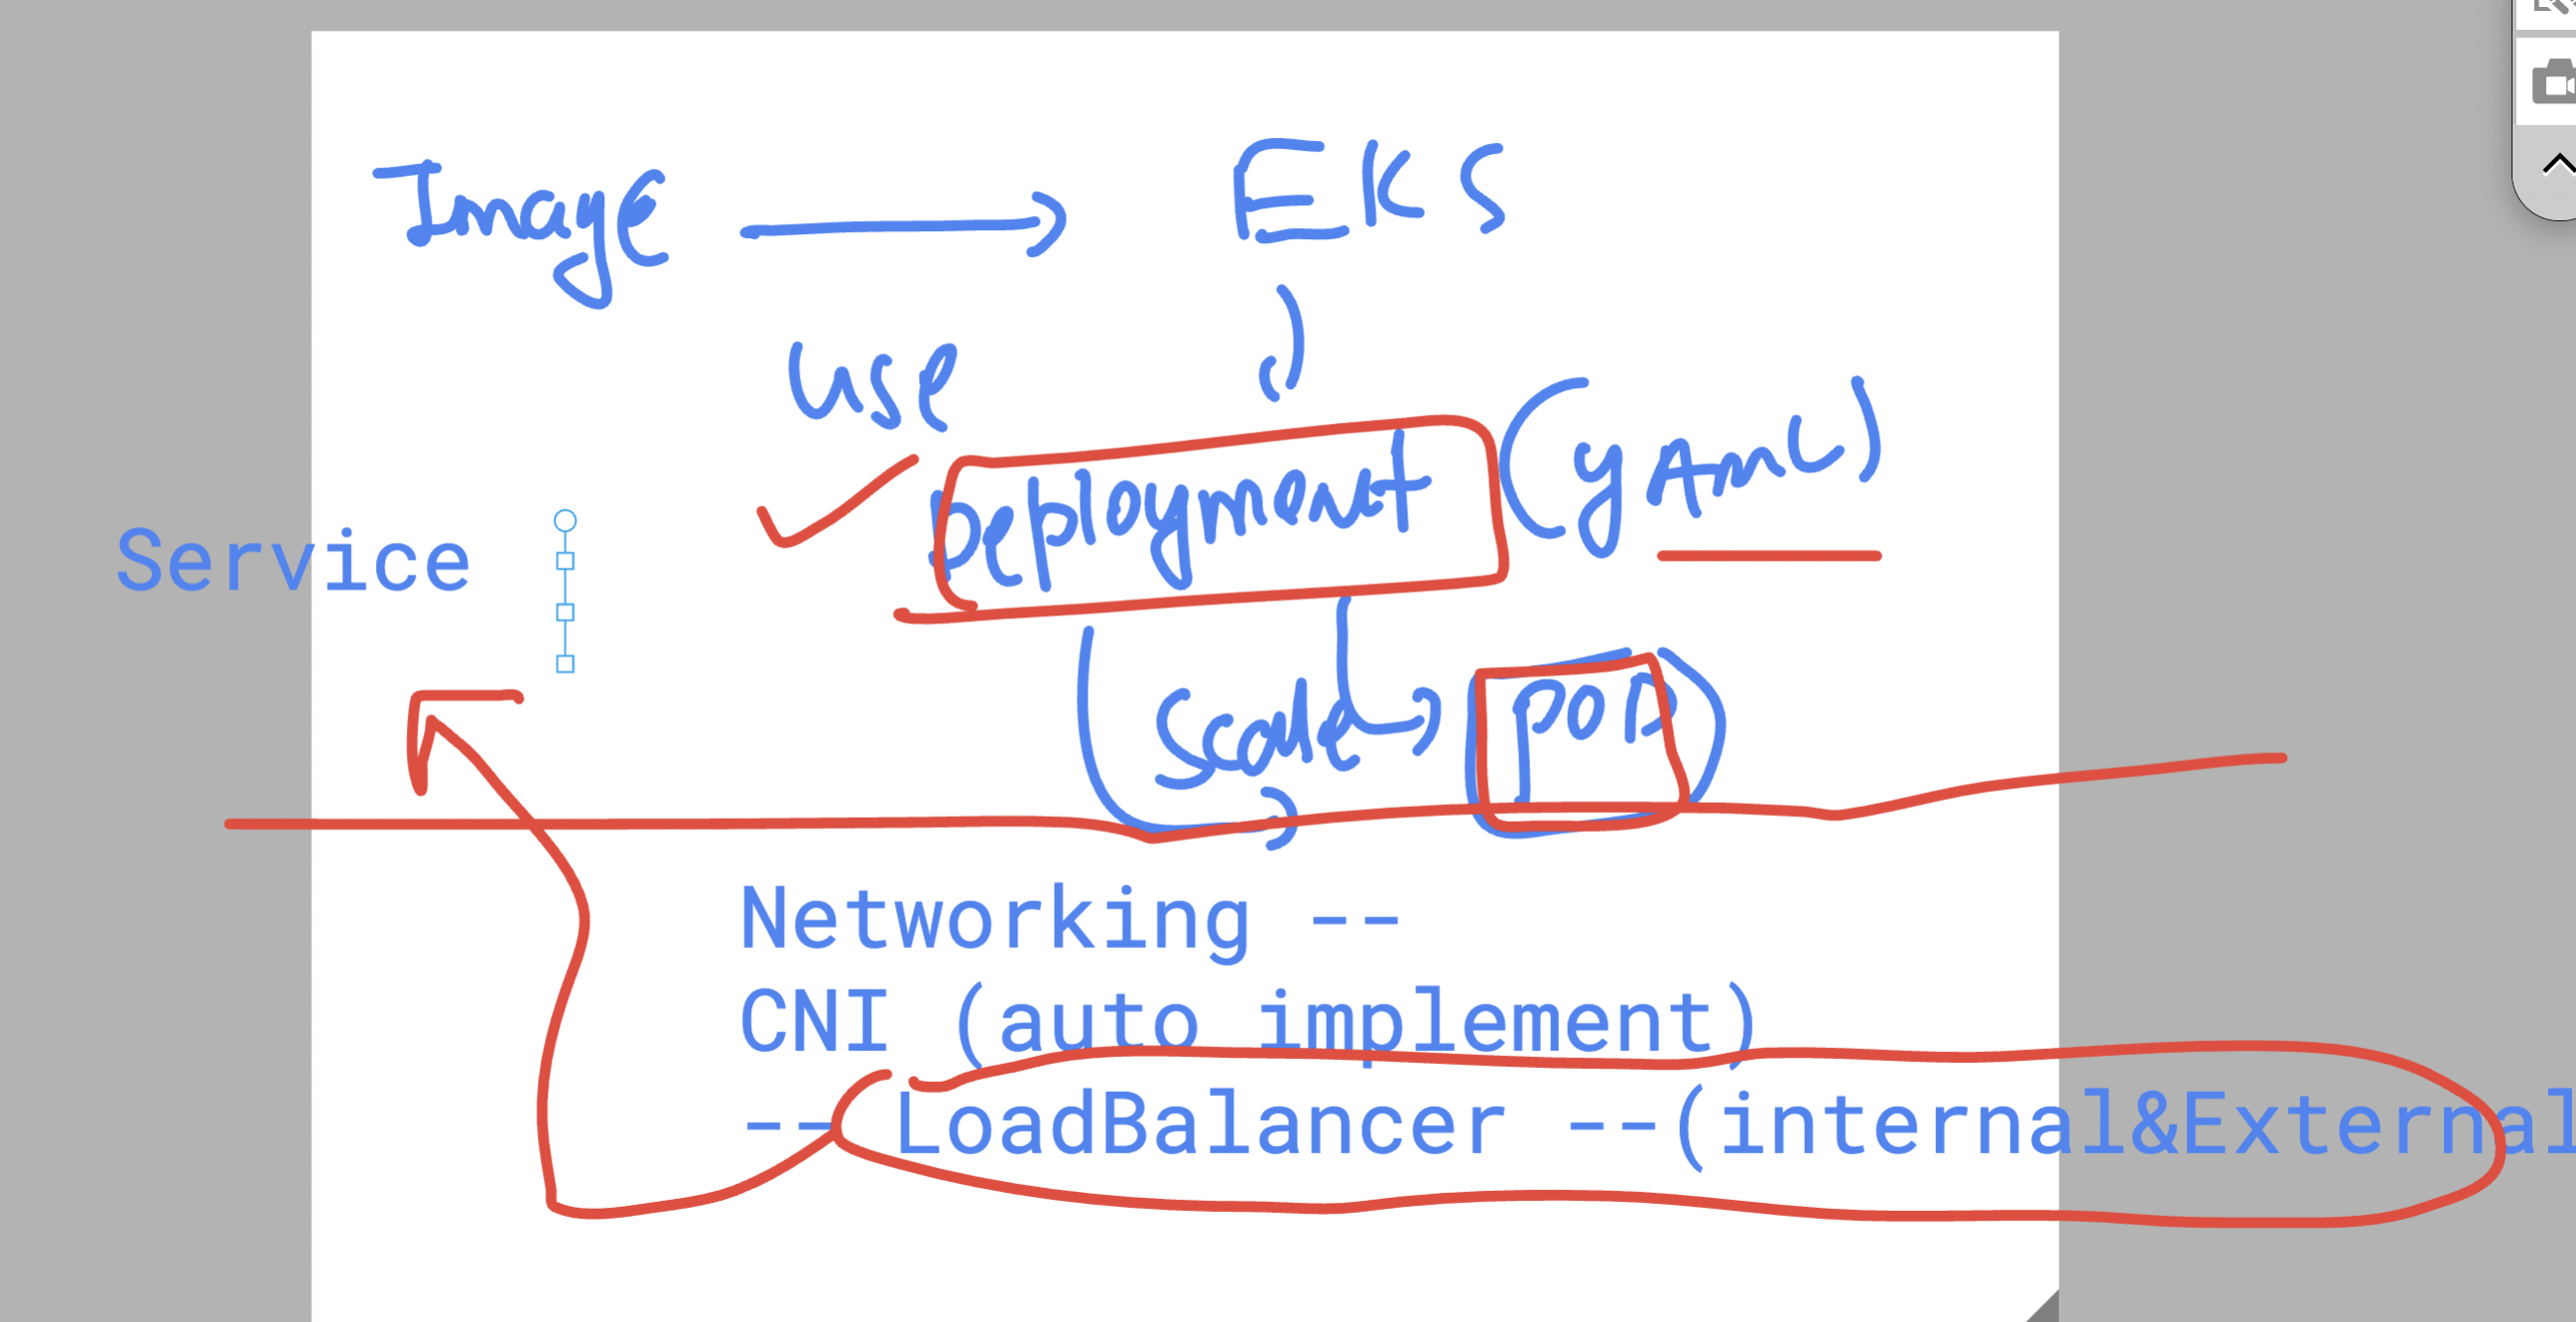 Image EKS
use
Deployment (yAML)
Service
Scale POD
Networking --
CNI (auto implement)
-- LoadBalancer --(internal&External